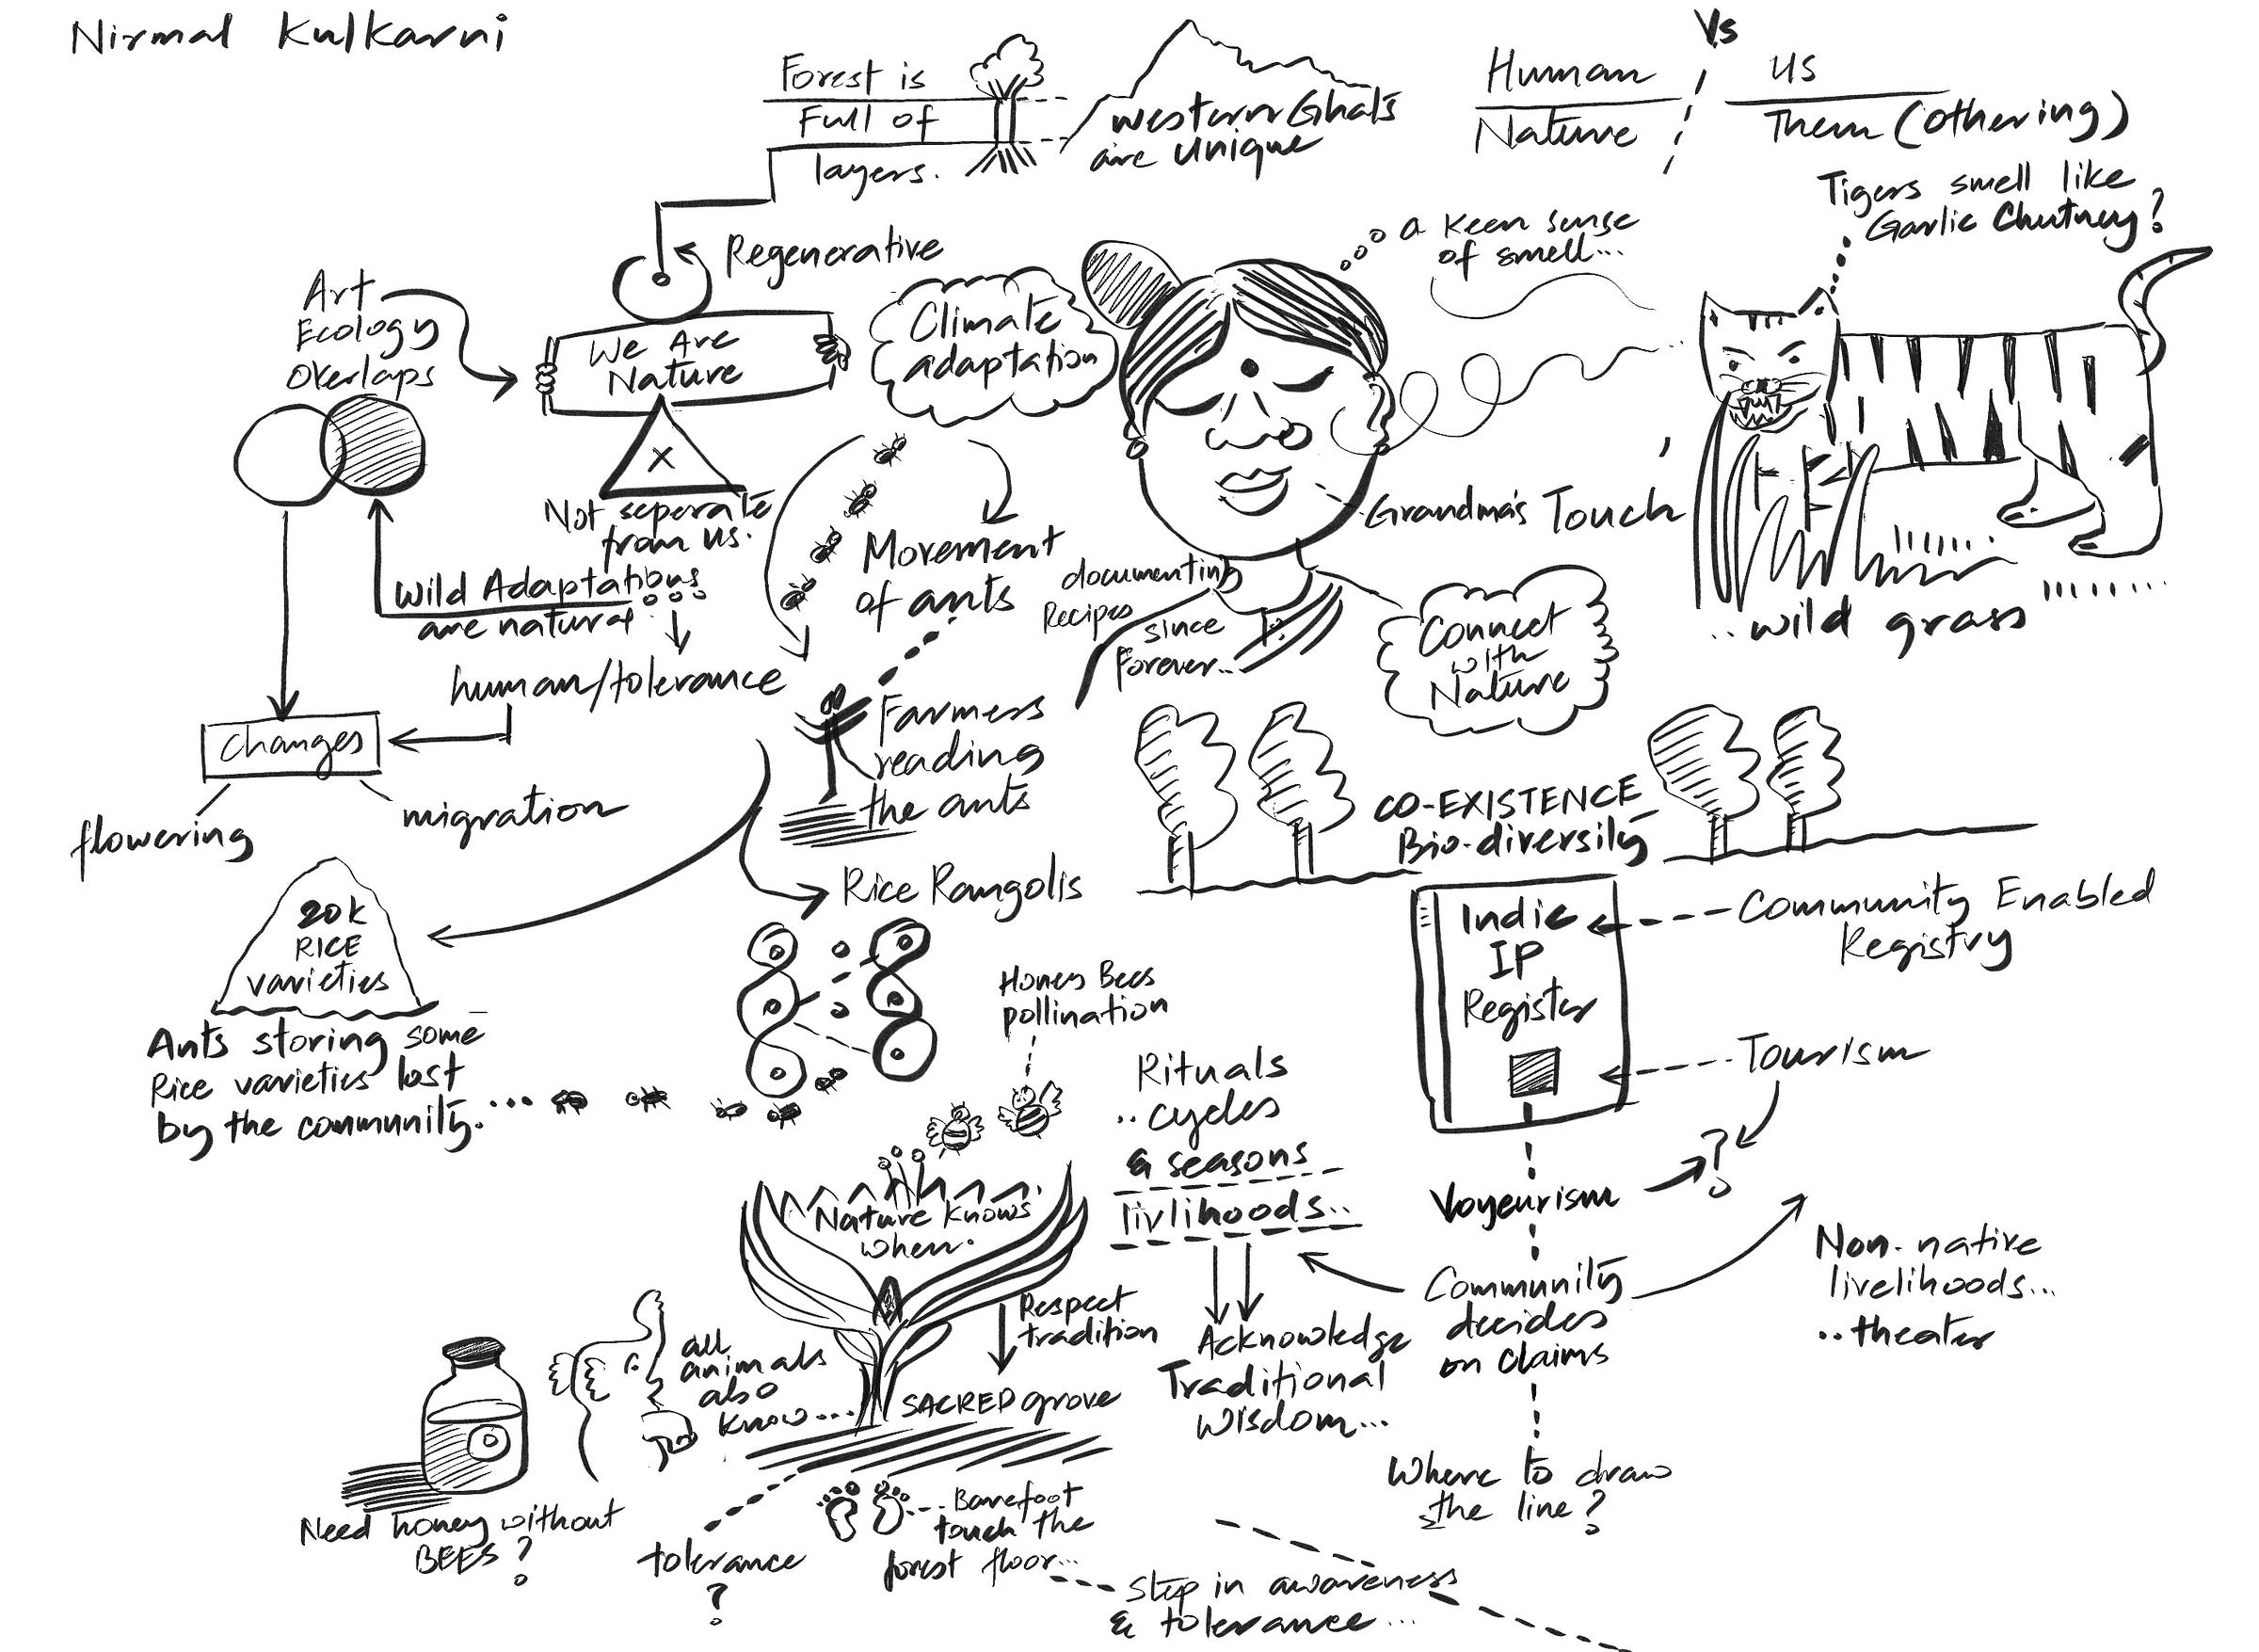 Nirmal Kulkarni
Forest is
Full of
layers.
Western Ghats
are unique
Vs
Human
Nature
us
Them (othering)
Tigers smell like
Garlic Chutney?
a keen sense
of smell...
Regenerative
Art
Ecology
Overlaps
We Are
Nature
Climate
adaptation
Not seperate
from us.
Wild Adaptations
are natural
human/tolerance
changes
flowering
migration
Movement
of ants
Farmers
reading
the ants
documenting
Recipes
since
Forever...
Grandma's Touch
Connect
with
Nature
..wild grass
CO-EXISTENCE
Bio-diversity
20k
RICE
varieties
Ants storing some
Rice varieties lost
by the community...
Rice Rangolis
Honey Bees
pollination
Indic
IP
Register
Community Enabled
Registry
Tourism
?
Voyeurism
Community
decides
on claims
Where to draw
the line?
Non-native
livelihoods...
..theater
Rituals
..cycles
& seasons
livlihoods..
Acknowledge
Traditional
wisdom...
Nature knows
when.
Respect
tradition
SACRED grove
all
animals
also
know...
Need honey without
BEES?
tolerance
?
Barefoot
touch the
forest floor...
Step in awareness
& tolerance...